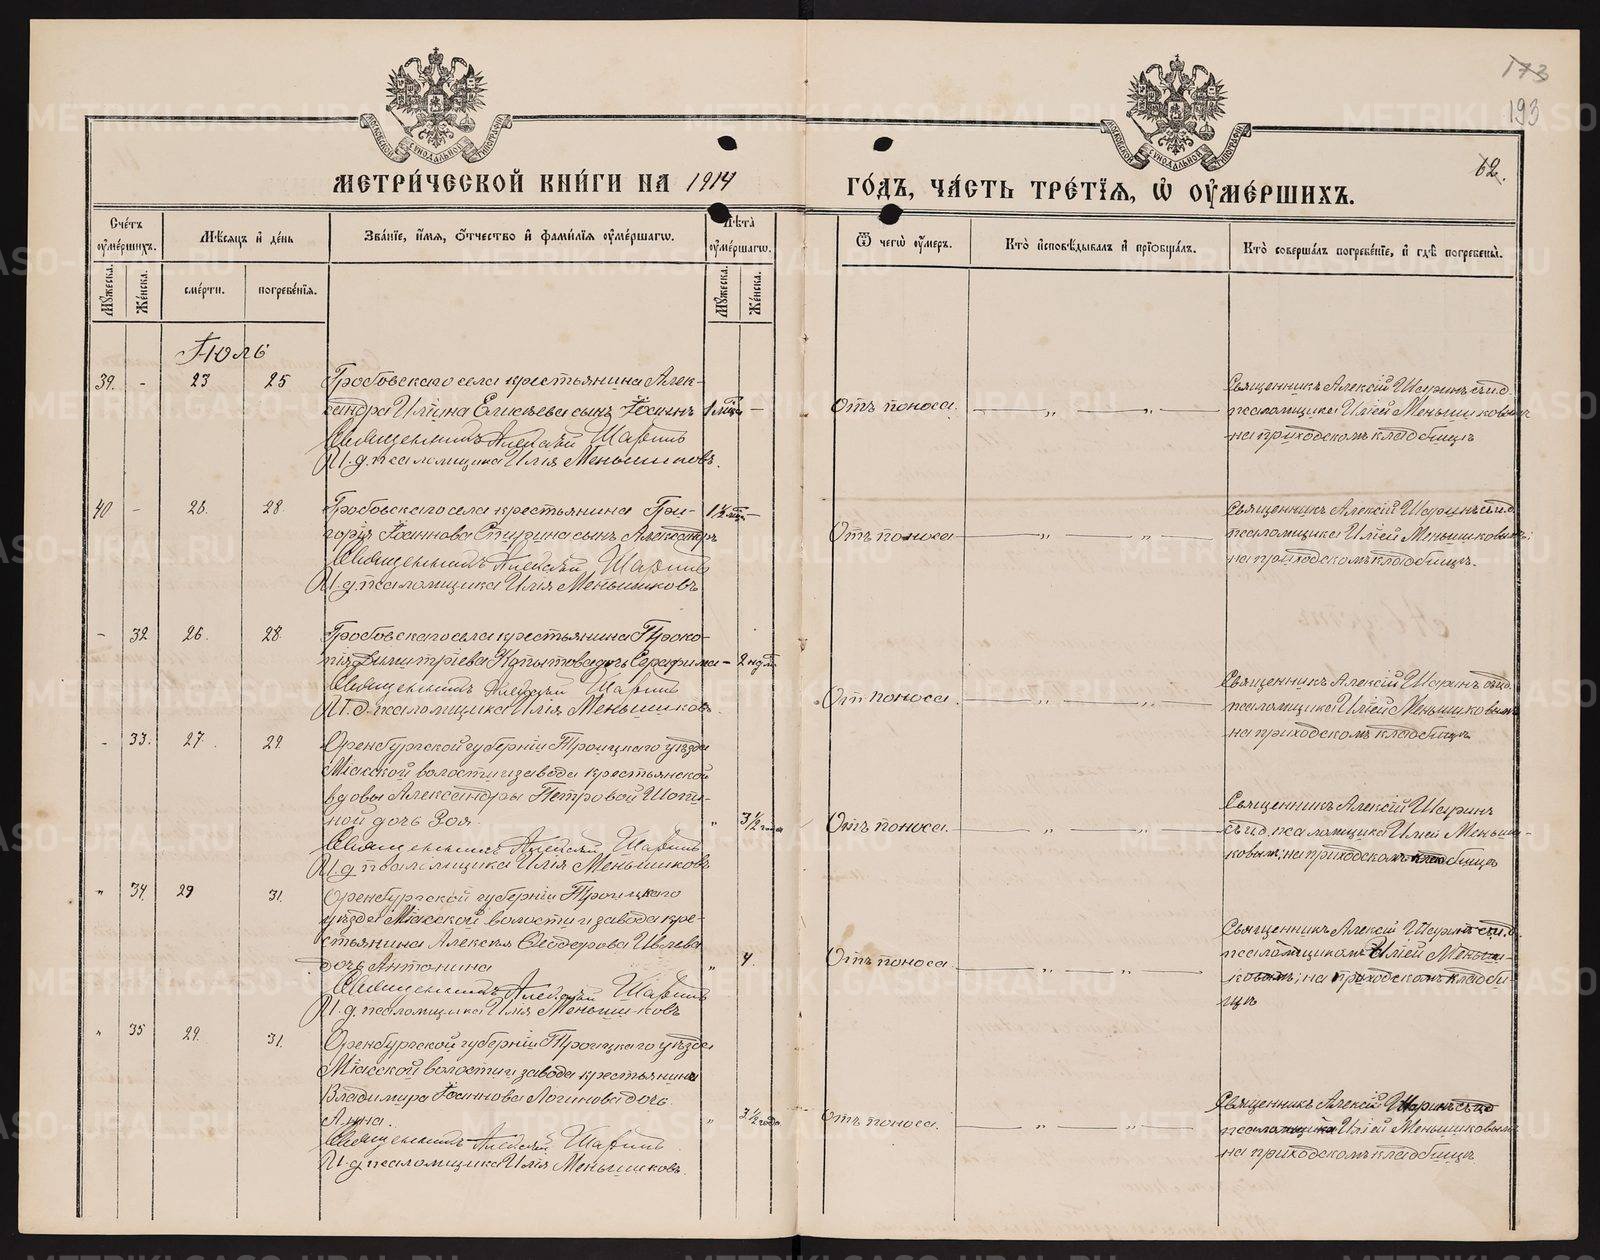 173
193
62.
МЕТРИ́ЧЕСКОЙ КНИ́ГИ НА 1914 ГО́ДЪ, ЧА́СТЬ ТРЕ́ТЇѦ, Ѡ҆ ОУ҆МЕ́РШИХЪ.
Сче́тъ оу҆ме́ршихъ.
Мꙋ́жеска.
Же́нска.
Мѣ́сѧцъ и҆ де́нь
сме́рти.
погребе́нїѧ.
Зва́нїе, и҆́мѧ, ѻ҆́тчество и҆ фами́лїѧ оу҆ме́ршагѡ.
Лѣ́та оу҆ме́ршагѡ.
Мꙋ́жеска.
Же́нска.
Ѿ чегѡ̀ оу҆́меръ.
Кто̀ и҆сповѣ́дывалъ и҆ прїѡбща́лъ.
Кто̀ соверша́лъ погребе́нїе, и҆ гдѣ̀ погребены̀.
Іюль
39. - 23 25
Гробовскаго села крестьянина Алек-
сандра Иліина Елисѣева сынъ Іоаннъ
Священникъ Алексій Шаринъ
И. д. псаломщика Илія Меньшиковъ.
Отъ поноса.
Священникъ Алексій Шаринъ съ и.д.
псаломщика Иліей Меньшиковымъ
на приходскомъ кладбищѣ
40 - 26. 28.
Гробовскаго села крестьянина Гри-
горія Іоаннова сынъ Александръ
Священникъ Алексій Шаринъ
И. д. псаломщика Илія Меньшиковъ
Отъ поноса
Священникъ Алексій Шаринъ съ и.д.
псаломщика Иліей Меньшиковымъ;
на приходскомъ кладбищѣ.
- 32 26. 28.
Гробовскаго села крестьянина Проко-
пія Димитріева Копытова дочь Серафима - 2 нед.
Священникъ Алексій Шаринъ
И. д. псаломщика Илія Меньшиковъ.
Отъ поноса.
Священникъ Алексій Шаринъ съ и.д.
псаломщика Иліей Меньшиковымъ
на приходскомъ кладбищѣ
- 33. 27. 29.
Оренбургской губерніи Троицкаго уѣзда
Міасской волости и завода крестьянской
вдовы Александры Петровой
дочь Зоя. " 3½ года
Священникъ Алексій Шаринъ
И. д. псаломщика Илія Меньшиковъ
Отъ поноса.
Священникъ Алексій Шаринъ
съ и.д. псаломщика Иліей Меньши-
ковымъ; на приходскомъ кладбищѣ
" 34. 29 31.
Оренбургской губерніи Троицкаго
уѣзда Міасской волости и завода кре-
стьянина Алексѣя Ѳеодорова Ивлева
дочь Антонина " 4.
Священникъ Алексій Шаринъ
И. д. псаломщика Илія Меньшиковъ
Отъ поноса
Священникъ Алексій Шаринъ съ и.д.
псаломщикомъ Иліей Меньши-
ковымъ; на приходскомъ кладби-
щѣ
" 35 29. 31.
Оренбургской губерніи Троицкаго уѣзда
Міасской волости и завода крестьянина
Владимира Іоаннова Логинова дочь
Анна. " 3½ года
Священникъ Алексій Шаринъ
И. д. псаломщика Илія Меньшиковъ.
Отъ поноса.
Священникъ Алексій Шаринъ съ и.д.
псаломщика Иліей Меньшиковымъ
на приходскомъ кладбищѣ
METRIKI.GASO-URAL.RU